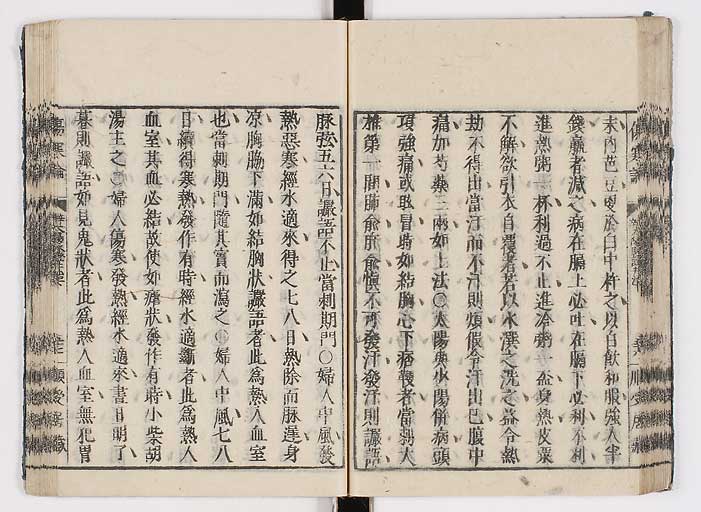 末內芭豆更於臼中杵之以白飲和服強人半
錢羸者減之病在膈上必吐在膈下必利不利
進熱粥一杯利過不止進冷粥一盃身熱皮粟
不解欲引衣自覆者若以水潠之洗之益令熱
劫不得出當汗而不汗則煩假令汗出已腹中
痛加芍藥三兩如上法○太陽與少陽併病頭
項強痛或眩冒時如結胸心下痞鞕者當刺大
椎第一間肺俞肝俞慎不可發汗發汗則讝語
脉弦五六日讝語不止當刺期門○婦人中風發
熱惡寒經水適來得之七八日熱除而脉遲身
凉胸脇下滿如結胸狀讝語者此爲熱入血室
也當刺期門隨其實而瀉之○婦人中風七八
日續得寒熱發作有時經水適斷者此爲熱入
血室其血必結故使如瘧狀發作有時小柴胡
湯主之○婦人傷寒發熱經水適來晝日明了
暮則讝語如見鬼狀者此爲熱入血室無犯胃
傷寒論